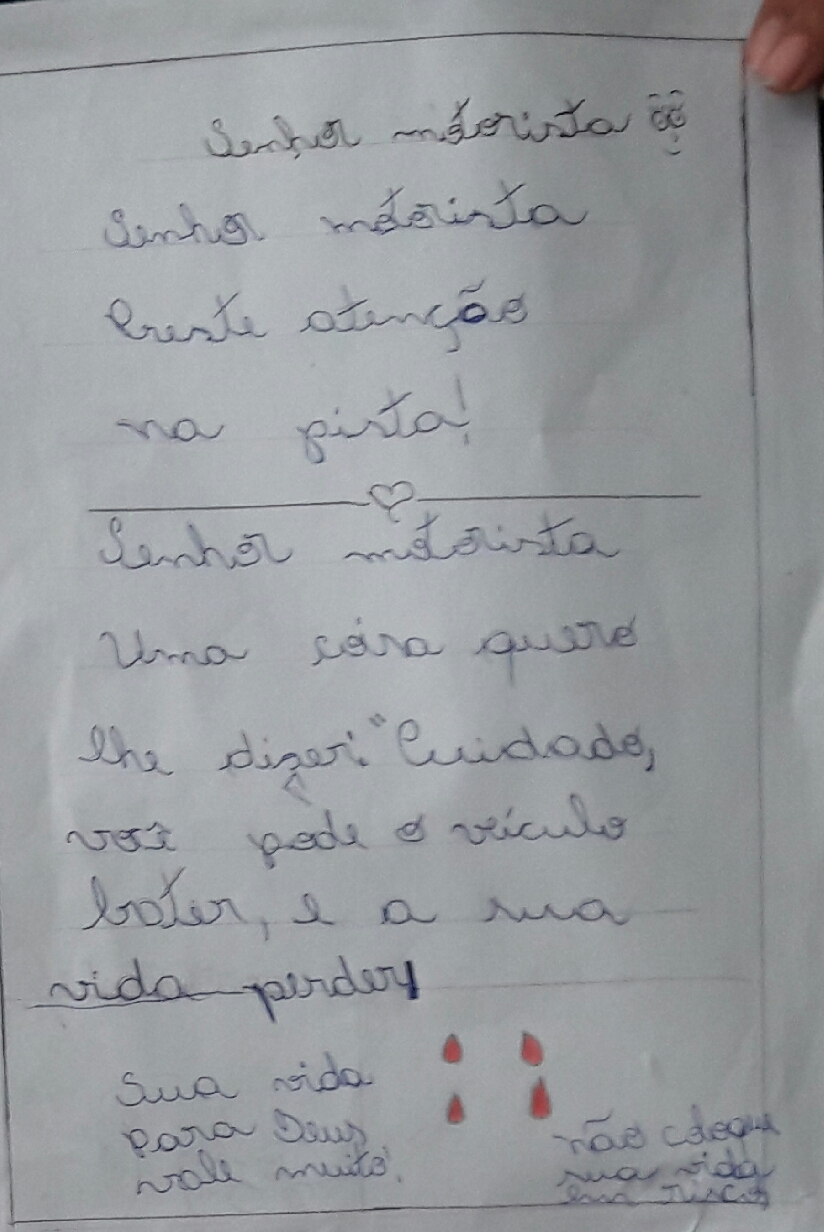 Senhor motorista
Senhor motorista
Preste atenção
na pista!
Senhor motorista
Uma coisa quero
lhe dizer: "Cuidado,
você pode o veículo
bater, e a sua
vida perder!
Sua vida
para Deus
vale muito!
não coloque
sua vida
em risco